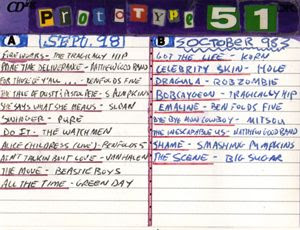 CDit
Prototype 51
A SEPT. 98
FIREWORKS - THE TRAGICALLY HIP
THE DELIVERANCE - MATTHEW GOOD BAND
FOR THOSE OF Y'ALL... - BEN FOLDS FIVE
THE TALE OF DUSTY & PISTOL PETE - S PUMPKINS
SHE SAYS WHAT SHE MEANS - SLOAN
SWINGER - PURE
DO IT - THE WATCHMEN
ALICE CHILDRESS (LIVE) - BEN FOLDS 5
AIN'T TALKIN BOUT LOVE - VAN HALEN
THE MOVE - BEASTIE BOYS
ALL THE TIME - GREEN DAY
B OCTOBER 98
GOT THE LIFE - KORN
CELEBRITY SKIN - HOLE
DRAGULA - ROB ZOMBIE
BOBCAYGEON - TRAGICALLY HIP
EMALINE - BEN FOLDS FIVE
BYE BYE MON COWBOY - MITSOU
THE INESCAPABLE US - MATTHEW GOOD BAND
SHAME - SMASHING PUMPKINS
THE SCENE - BIG SUGAR